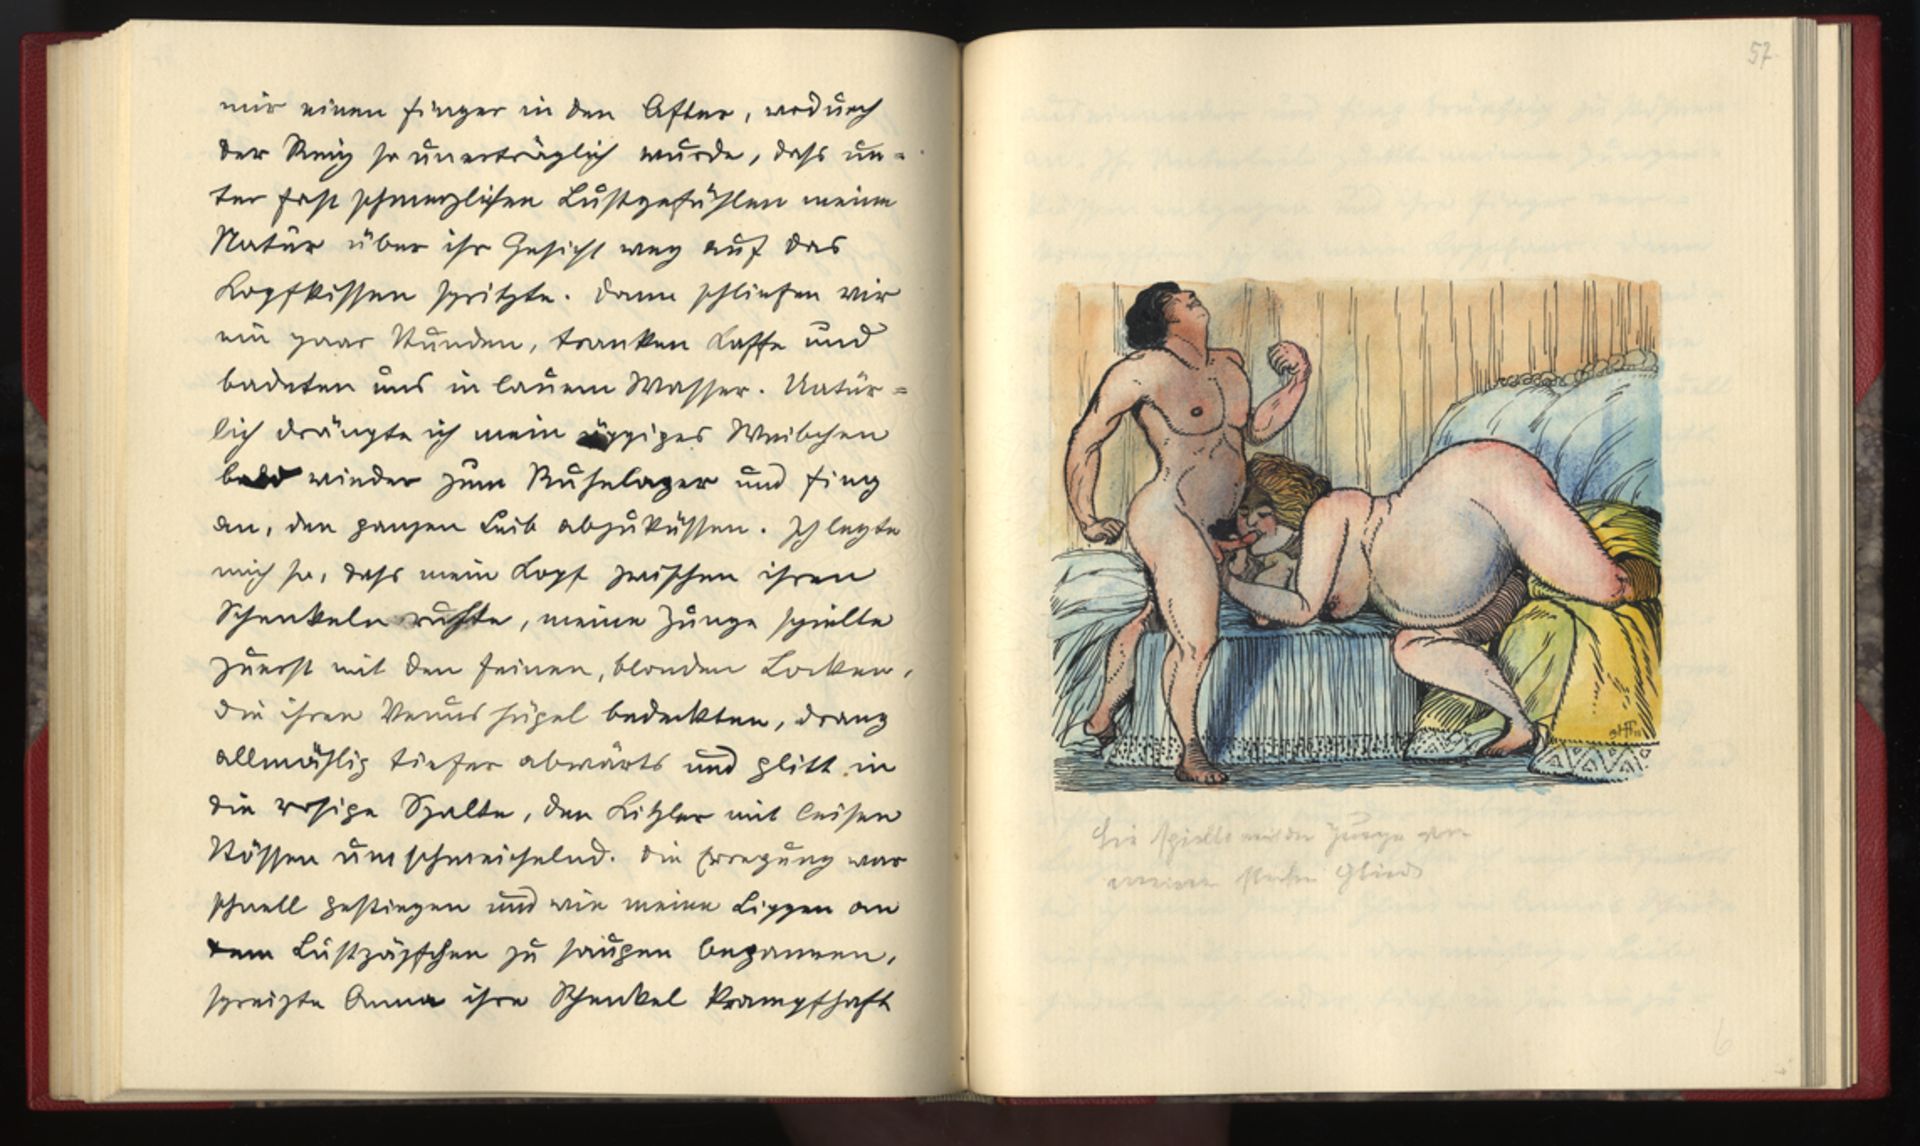 mir einen Finger in den After, wodurch
der Reiz so unerträglich wurde, dass un=
ter fast schmerzlichen Lustgefühlen meine
Natur über ihr Gesicht weg auf das
Kopfkissen spritzte. Dann schliefen wir
ein paar Stunden, tranken Kaffe und
badeten uns in lauem Wasser. Natür=
lich drängte ich mein üppiges Weibchen
bald wieder zum Ruhelager und fing
an, den ganzen Leib abzuküssen. Ich legte
mich so, dass mein Kopf zwischen ihren
Schenkeln ruhte, meine Zunge spielte
zuerst mit den feinen, blonden Locken,
die ihren Venushügel bedeckten, drang
allmählig tiefer abwärts und glitt in
die rosige Spalte, den Kitzler mit leisen
Stössen umschmeichelnd. Die Erregung war
schnell gestiegen und wie meine Lippen an
dem Lustzäpfchen zu saugen begannen,
spreizte Anna ihre Schenkel krampfhaft
57
Sie spielte mit der Zunge an
meinem Glied
6